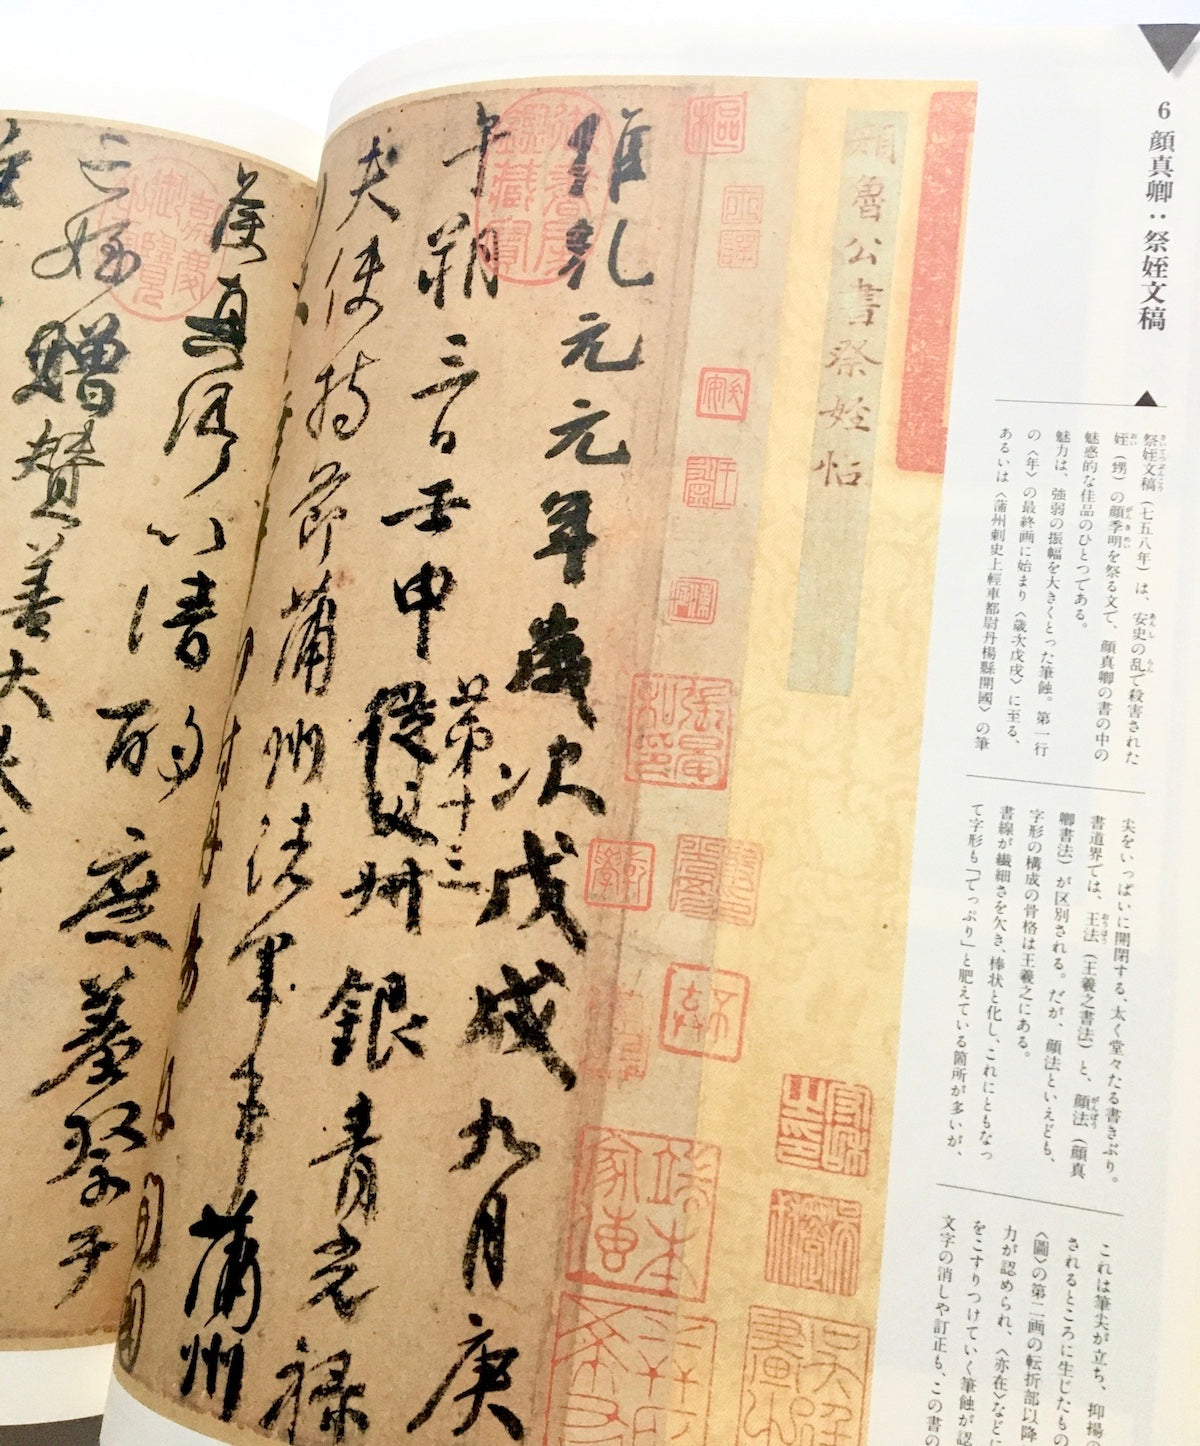 6 顔真卿：祭姪文稿
祭姪文稿（七五八年）は、安史の乱で殺害された
姪（甥）の顔季明を祭る文で、顔真卿の書の中の
魅惑的な佳品のひとつである。
魅力は、強弱の振幅を大きくとった筆蝕。第一行
の〈年〉の最終画に始まり〈歳次戊戌〉に至る、
あるいは〈蒲州刺史上輕車都尉丹楊縣開國〉の筆
尖をいっぱいに開閉する、太く堂々たる書きぶり。
書道界では、王法（王羲之書法）と、顔法（顔真
卿書法）が区別される。だが、顔法といえども、
字形の構成の骨格は王羲之にある。
書線が繊細さを欠き、棒状と化し、これにともなっ
て字形も「てっぷり」と肥えている箇所が多いが、
これは筆尖が立ち、抑揚の
されるところに生じたもの
〈圖〉の第二画の転折部以降
力が認められ、〈亦在〉などに
をこすりつけていく筆蝕が認
文字の消しや訂正も、この書の
顔魯公書祭姪帖
維乾元元年歲次戊戌九月庚
午朔三日壬申第十三
從父
夫使持節蒲州諸軍事蒲州
州銀青光祿
以清酌庶羞祭于
亡姪贈贊善大夫